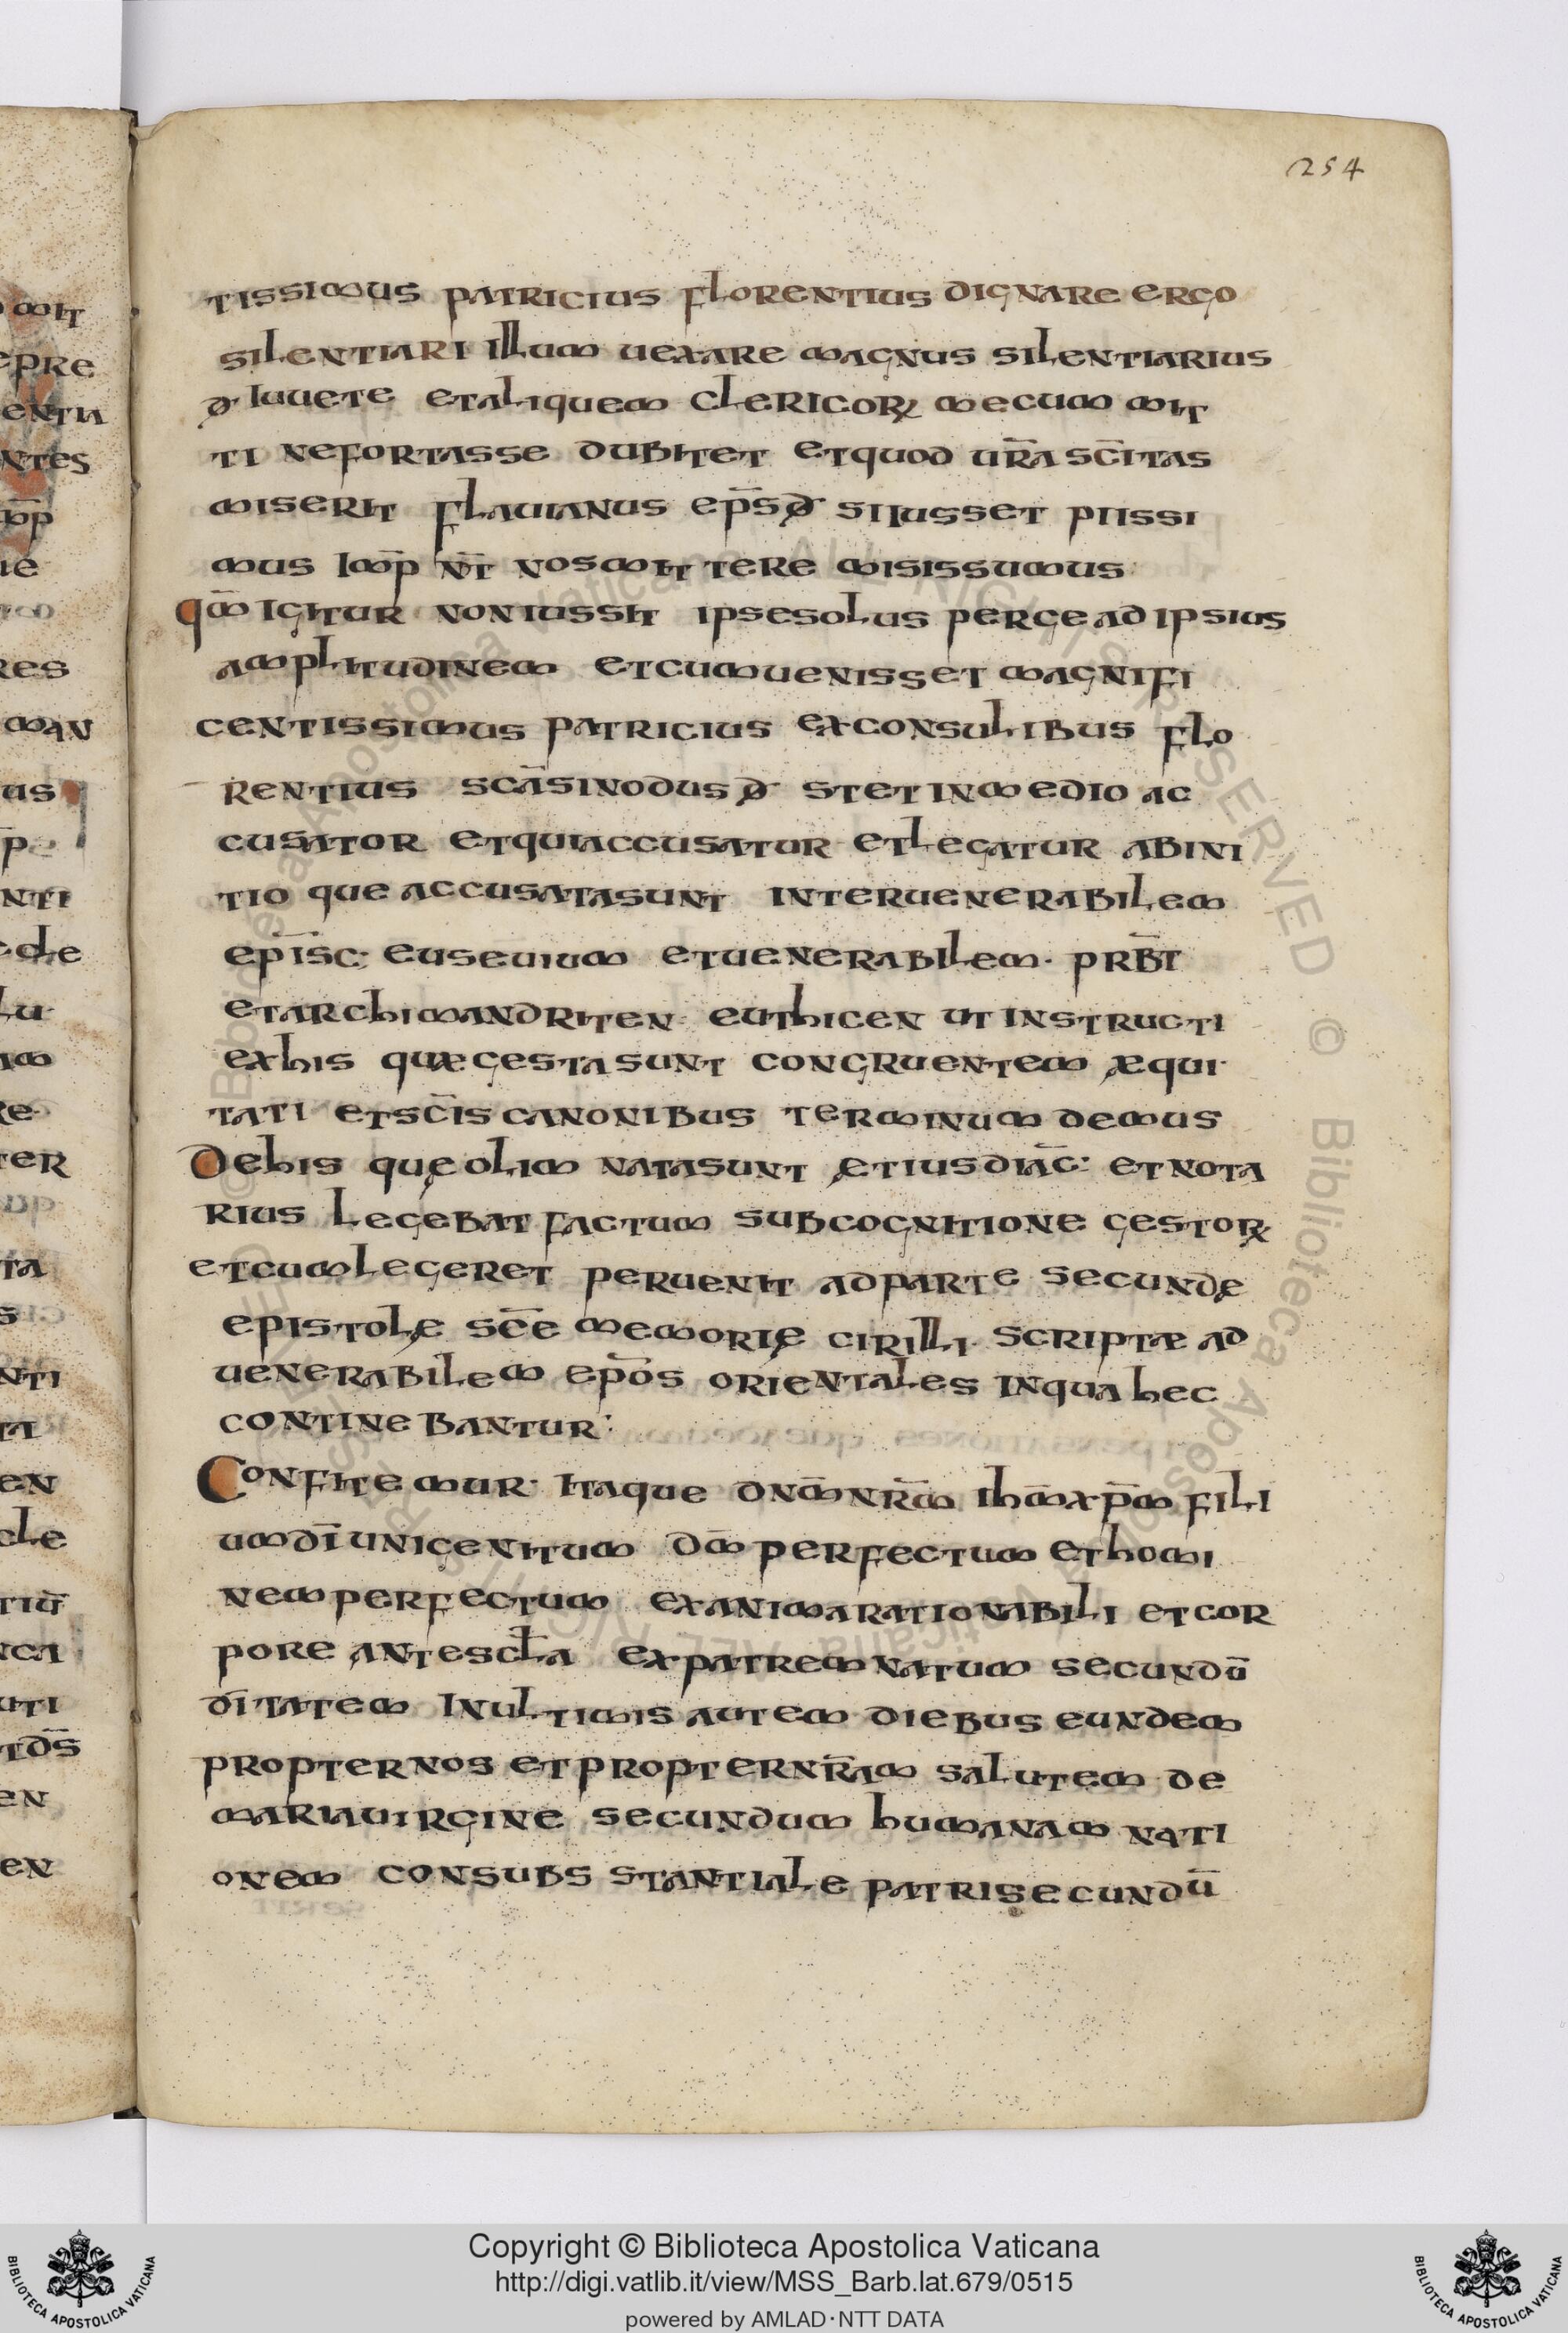 254
tissimus patricius florentius dignare ergo
silentiari illum uexare magnus silentiarius
đ iuuete et aliquem clericorꝝ mecum mit
ti ne fortasse dubitet et quod ur̄a sc̄itas
miserit flauianus ep̄s đ si iusset piissi
mus imp̄ nt̄ nos mittere misissumus
qm̄ igitur non iussit ipse solus perge ad ipsius
amplitudinem et cum uenisset magnifi
centissimus patricius ex consulibus flo
rentius scā sinodus đ stet in medio ac
cusator et qui accusatur et legatur ab ini
tio que accusata sunt inter uenerabilem
ep̄isc· euseuium et uenerabilem· prb̄t
et archimandriten· euthicen ut instructi
ex his quæ gesta sunt congruentem æqui
tati et sc̄is canonibus terminum demus
De his quę olim nata sunt ętius diāc: et nota
rius legebat factum sub cognitione gestorꝝ
et cum legeret peruenit ad parte secundę
epistolę sc̄e memorię cirilli· scriptæ ad
uenerabilem ep̄os orientales in qua hec
continebantur:
Confitemur· itaque dn̄m nr̄m ih̄m xp̄m fili
um dī unigenitum dm̄ perfectum et homi
nem perfectum ex anima rationabili et cor
pore ante scl̄a ex patrem natum secundū
dītatem in ultimis autem diebus eundem
propter nos et propter nr̄am salutem de
maria uirgine secundum humanam nati
onem consubsstantiale patri secundū
Copyright © Biblioteca Apostolica Vaticana
http://digi.vatlib.it/view/MSS_Barb.lat.679/0515
powered by AMLAD·NTT DATA